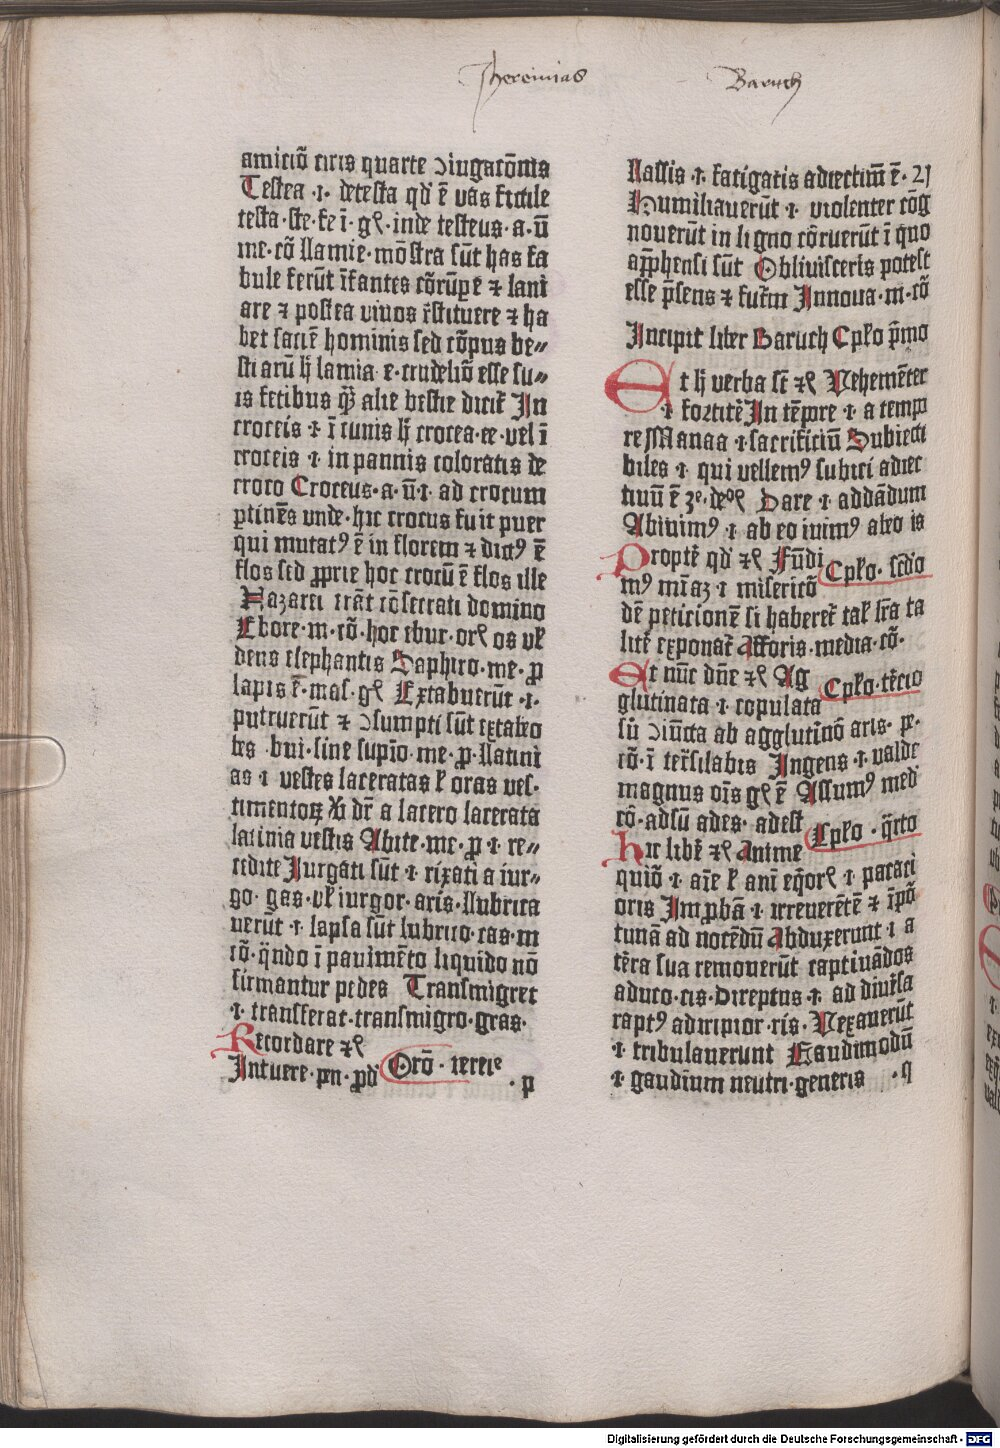 Jheremias
Baruch
amiciō ciris quarte ↄiugacōnis
Testea .ı. detesta qd' ē vas fictile
testa .ste. fe ī. gꝭ. inde testeus .a. ū
me. cō Lamie. mōstra sūt has fa
bule ferūt īfantes cōrūpe ē ⁊ lani
are ⁊ postea viuos r̄stituere ⁊ ha
bet faciē hominis sed cōpus be〃
sti arū h̄ lamia .e. crudeliō esse su〃
is fetibus qꝫ̄ alie bestie dicit̄ In
croceis .ı. ī cunis h̄ crocea .ee. vel ī
croceis .ı. in pannis coloratis de
croco Croceus .a. ū .ı. ad crocum
ꝑtinēs vnde. hic crocus fuit puer
qui mutatꝰ ē in florem ⁊ dictꝰ ē
flos sed ꝓprie hoc crocū ē flos ille
Nazarei erāt cōsecrati domino
Ebore .m. cō. hoc ebur .orꝭ os vl̄
dens elephantis Saphiro .me. ꝓ
lapis ē. mas. gꝭ Extabuerūt .ı.
putruerūt ⁊ ↄsumpti sūt extabeo
bes .bui. sine supīo .me. ꝓ. Lacini
as ı vestes laceratas l̄ oras ves.
timentoꝝ dr̄ a lacero lacerata
latinia vestis Abite .me. ꝓ ı re〃
cedite Iurgati sūt ı rixati a iur〃
go. gas. vl̄ iurgor .aris. Lubrica
uerūt ı lapsa sūt lubrico .cas .m
cō. qn̄do ī pauimēto liquido nō
firmantur pedes Transmigret
.ı. transferat .transmigro .gras.
Recordare ⁊ꝭ
Intuere .pn. ꝓd' Orō . ierēc
. p
Lassis .ı. fatigatis adiectiuū ē. 21
Humiliauerūt .ı. violenter cōg
nouerūt in li gno cōruerūt ī quo
appr̄hensi sūt Obliuisceris potest
esse p̄sens ⁊ futm̄ Innoua .m. cō
Incipit liber Baruch Cpl̄o p̄mo
Et h̄ verba sc̄ ⁊ꝭ Vehemēter
.ı. fortitē In tēpre .ı. a temp
re Manaa .ı sacrificiū Subiecti
biles .ı. qui vellemꝰ subici adiec
tiuū ē 3ᵉ. deᵒꝭ Dare .ı. addādum
Abiuimꝰ .ı. ab eo iuimꝰ abeo is
Propt̄ qd' ⁊ꝭ Fūdi
Cpl̄o . scd̄o
mꝰ mīaꝫ ı misericō
dē peticionē si haberet̄ tal' sn̄a ta
lit̄ exponat̄ Afforis .media .cō.
Et nūc dn̄e ⁊ꝭ Ag
Cpl̄o .tēcio
glutinata .ı copulata
sū ↄiūcta ab agglutinō aris .p.
cō. ī ter̄silabis Ingens .ı. valde
magnus oīs gꝭ ē Assumꝰ med
cō .adsū ades. adest
Cpl̄o . q̄rto
Hic libē ⁊ꝭ Anime
quiō .ı. aīe l̄ ani eq̄orꝭ ı pacaci
oris Imꝓbā .ı. irreuerētē ⁊ īpō
tunā ad nocēdū Abduxerunt .ı a
tēra sua remouerūt captiuādos
aduco .cis. Direptus .ı. ad diūsa
raptꝰ adiripior .ris. Vexauerūt
.ı tribulauerunt Gaudimodū
.ı gaudium neutri .generis
. q
Digitalisierung gefördert durch die Deutsche Forschungsgemeinschaft - DFG